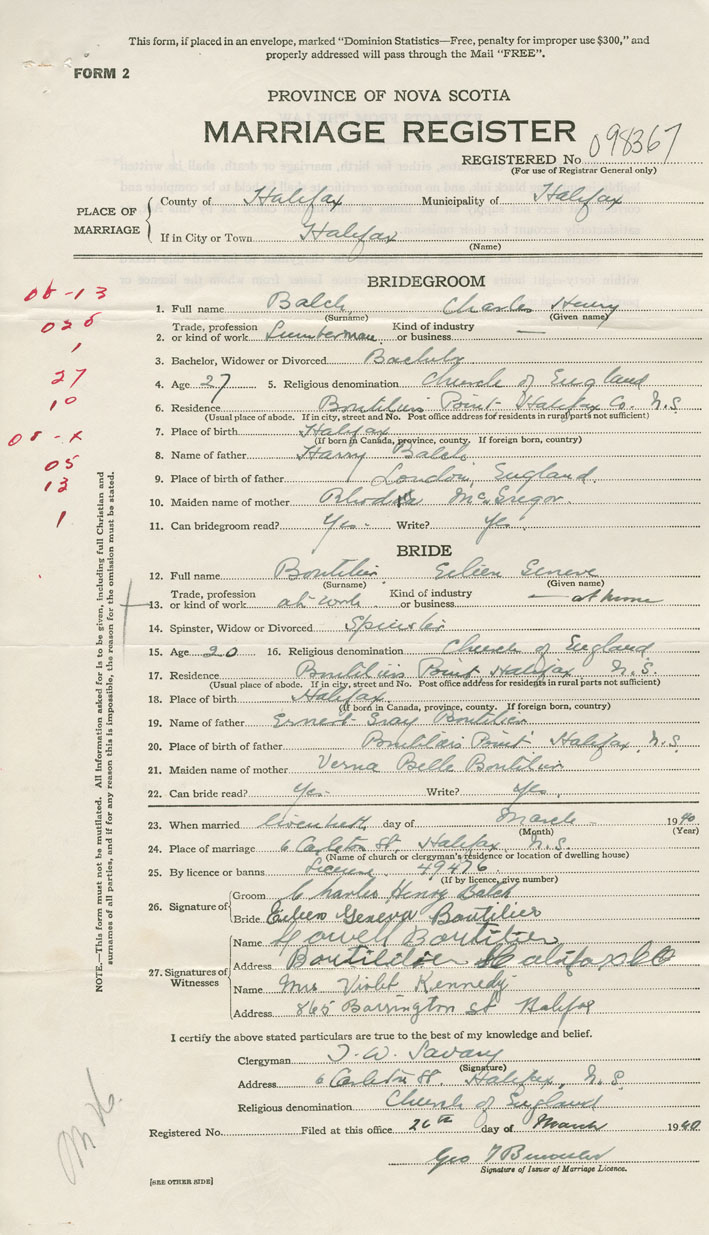 This form, if placed in an envelope, marked "Dominion Statistics—Free, penalty for improper use $300," and
properly addressed will pass through the Mail "FREE".
FORM 2
PROVINCE OF NOVA SCOTIA
MARRIAGE REGISTER
REGISTERED No. 098367
(For use of Registrar General only)
PLACE OF MARRIAGE
County of Halifax Municipality of Halifax
If in City or Town Halifax
(Name)
BRIDEGROOM
1. Full name Balch, Charles Henry
(Surname) (Given name)
2. Trade, profession or kind of work Lumberman Kind of industry or business —
3. Bachelor, Widower or Divorced Bachelor
4. Age 27 5. Religious denomination Church of England
6. Residence Boutiliers Point Halifax Co. N.S.
(Usual place of abode. If in city, street and No. Post office address for residents in rural parts not sufficient)
7. Place of birth Halifax
(If born in Canada, province, county. If foreign born, country)
8. Name of father Harry Balch
9. Place of birth of father London, England.
10. Maiden name of mother Rhoda McGregor
11. Can bridegroom read? Yes - Write? Yes.
BRIDE
12. Full name Boutilier Eileen Geneve
(Surname) (Given name)
13. Trade, profession or kind of work at work Kind of industry or business — at home
14. Spinster, Widow or Divorced Spinster
15. Age 20 16. Religious denomination Church of England
17. Residence Boutiliers Point Halifax N.S.
(Usual place of abode. If in city, street and No. Post office address for residents in rural parts not sufficient)
18. Place of birth Halifax
(If born in Canada, province, county. If foreign born, country)
19. Name of father Ernest Gray Boutilier
20. Place of birth of father Boutiliers Point Halifax, N.S.
21. Maiden name of mother Verna Belle Boutilier
22. Can bride read? Yes- Write? Yes.
23. When married day of March 1940
(Month) (Year)
24. Place of marriage 6 Carleton St, Halifax, N.S.
(Name of church or clergyman's residence or location of dwelling house)
25. By licence or banns License 49476
(If by licence, give number)
26. Signature of
Groom Charles Henry Balch
Bride Eileen Geneva Boutilier
27. Signatures of Witnesses
Name Boutilier
Address Boutilier Halifax Co
Name Mrs Violet Kennedy
Address 865 Barrington St Halifax
I certify the above stated particulars are true to the best of my knowledge and belief.
Clergyman T. W. Savary
(Signature)
Address 6 Carleton St. Halifax, N.S.
Religious denomination Church of England
Registered No. Filed at this office 26th day of March 1940
Geo T
Signature of Issuer of Marriage Licence.
[SEE OTHER SIDE]
NOTE.—This form must not be mutilated. All information asked for is to be given, including full Christian and
surnames of all parties, and if for any reason this is impossible, the reason for the omission must be stated.
1
27
10
05
13
1